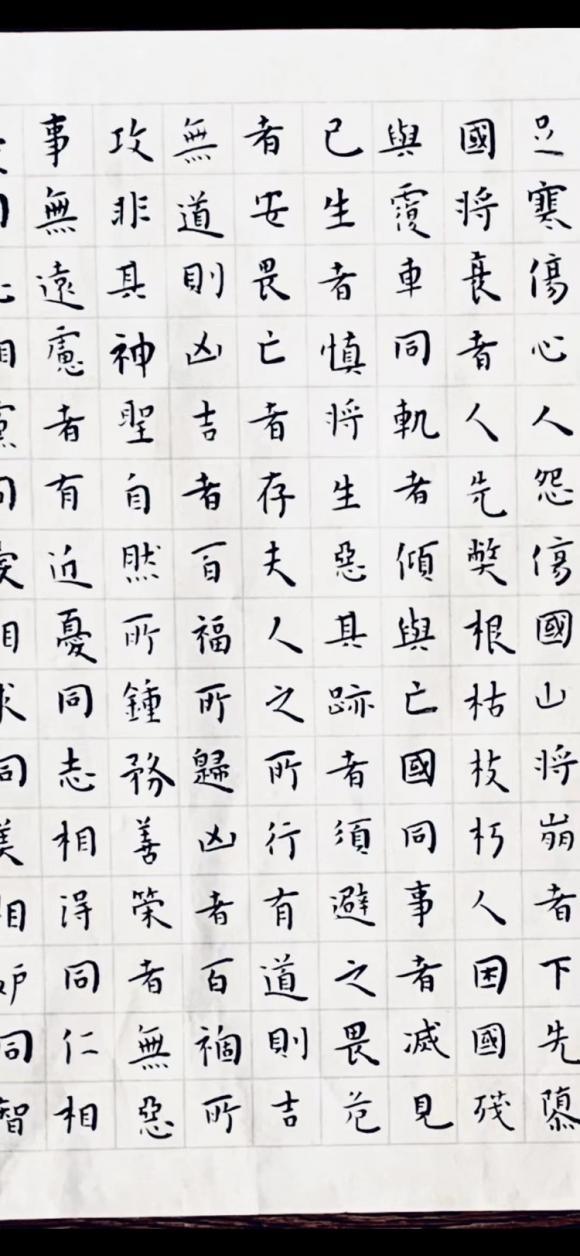 足寒傷心人怨傷國山將崩者下先隳
國將衰者人先弊根枯枝朽人困國殘
與覆車同軌者傾與亡國同事者滅見
已生者慎將生惡其跡者須避之畏危
者安畏亡者存夫人之所行有道則吉
無道則凶吉者百福所歸凶者百禍所
攻非其神聖自然所鍾務善策者無惡
事無遠慮者有近憂同志相得同仁相
相黨同愛相求同美相妒同智